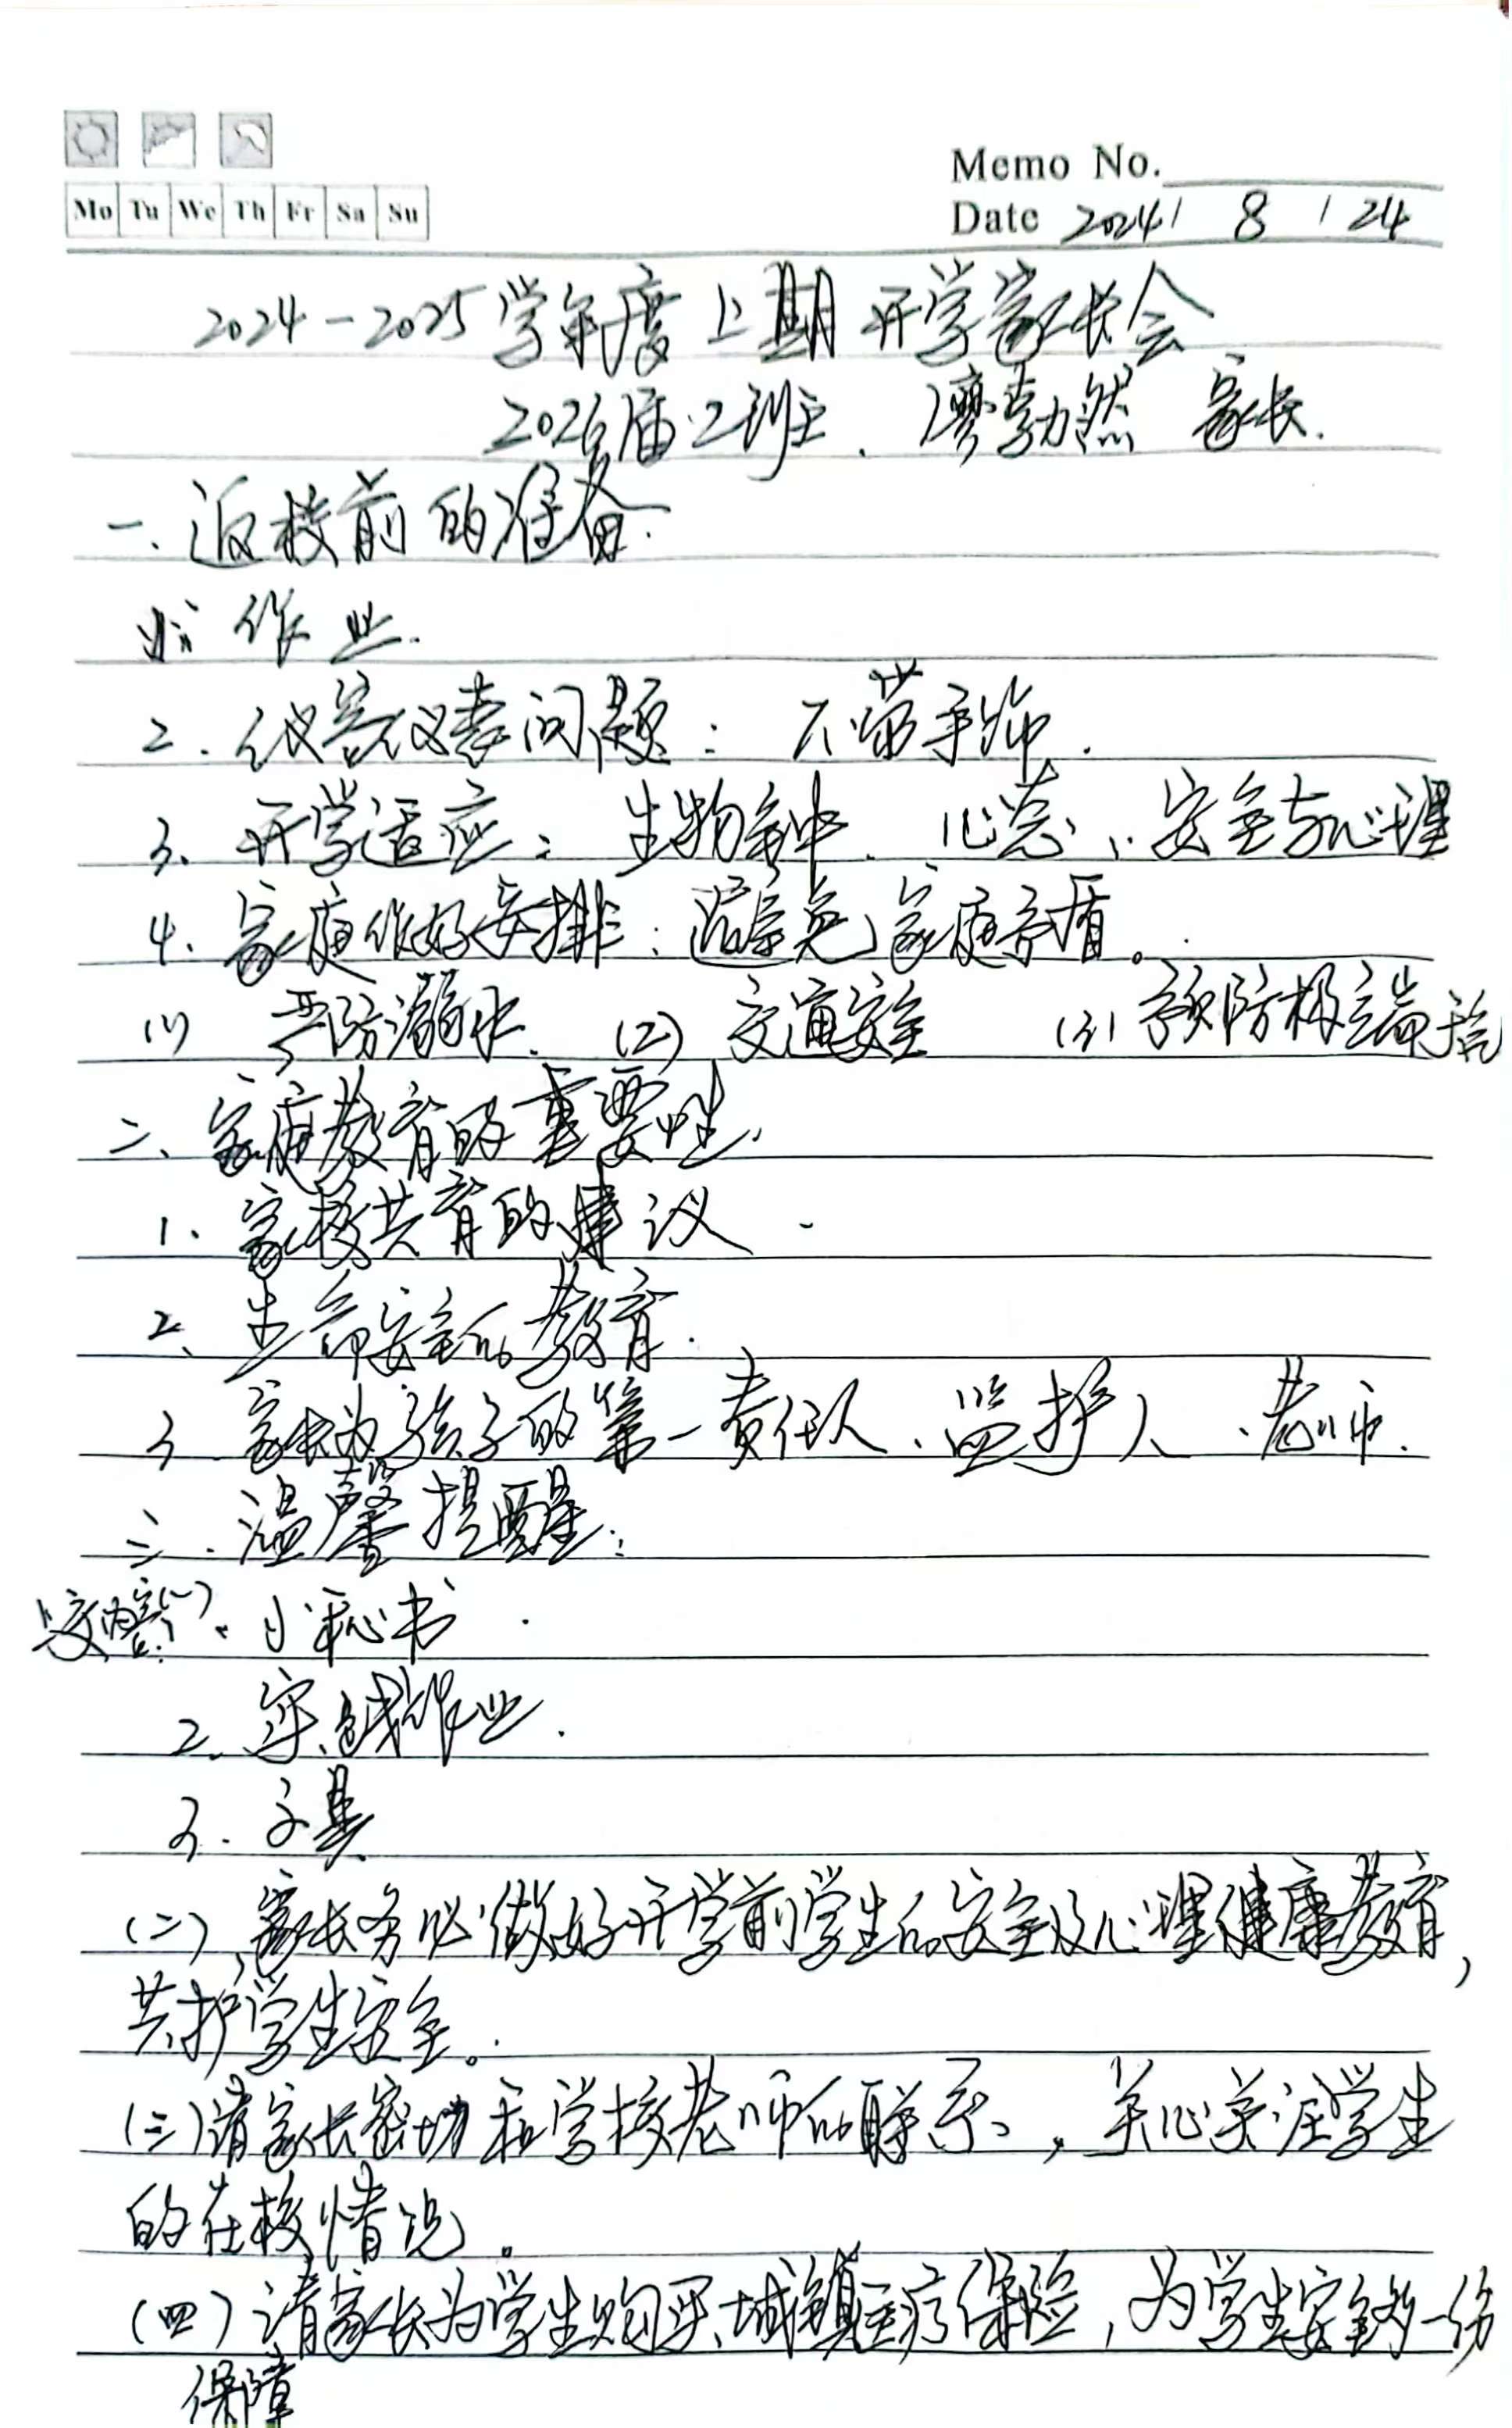 Memo No.
Mo Tu We Th Fr Sa Su
Date 2024 / 8 / 24
2024-2025学年度上期开学家长会
2026届2班、廖勃然 家长.
一、返校前的准备.
作业.
2. 仪容仪表问题：不带手饰.
3、开学适应：生物钟、心态、安全与心理
4、家庭作好安排：避免家庭矛盾。
(1) 严防溺水 (2) 交通安全 (3) 预防极端
二、家庭教育的重要性.
1、家校共育的建议.
2、生命安全的教育.
3 家长为孩子的第一责任人、监护人、老师.
三、温馨提醒：
上交内容(一) 1. 小秘书.
2. 实践作业.
3. 文具
(二)、家长务必做好开学前学生的安全及心理健康教育，
共护学生安全。
(三)请家长密切和学校老师的联系，关心关注学生
的在校情况。
(四)请家长为学生购买城镇医疗保险，为学生安全多一份
保障